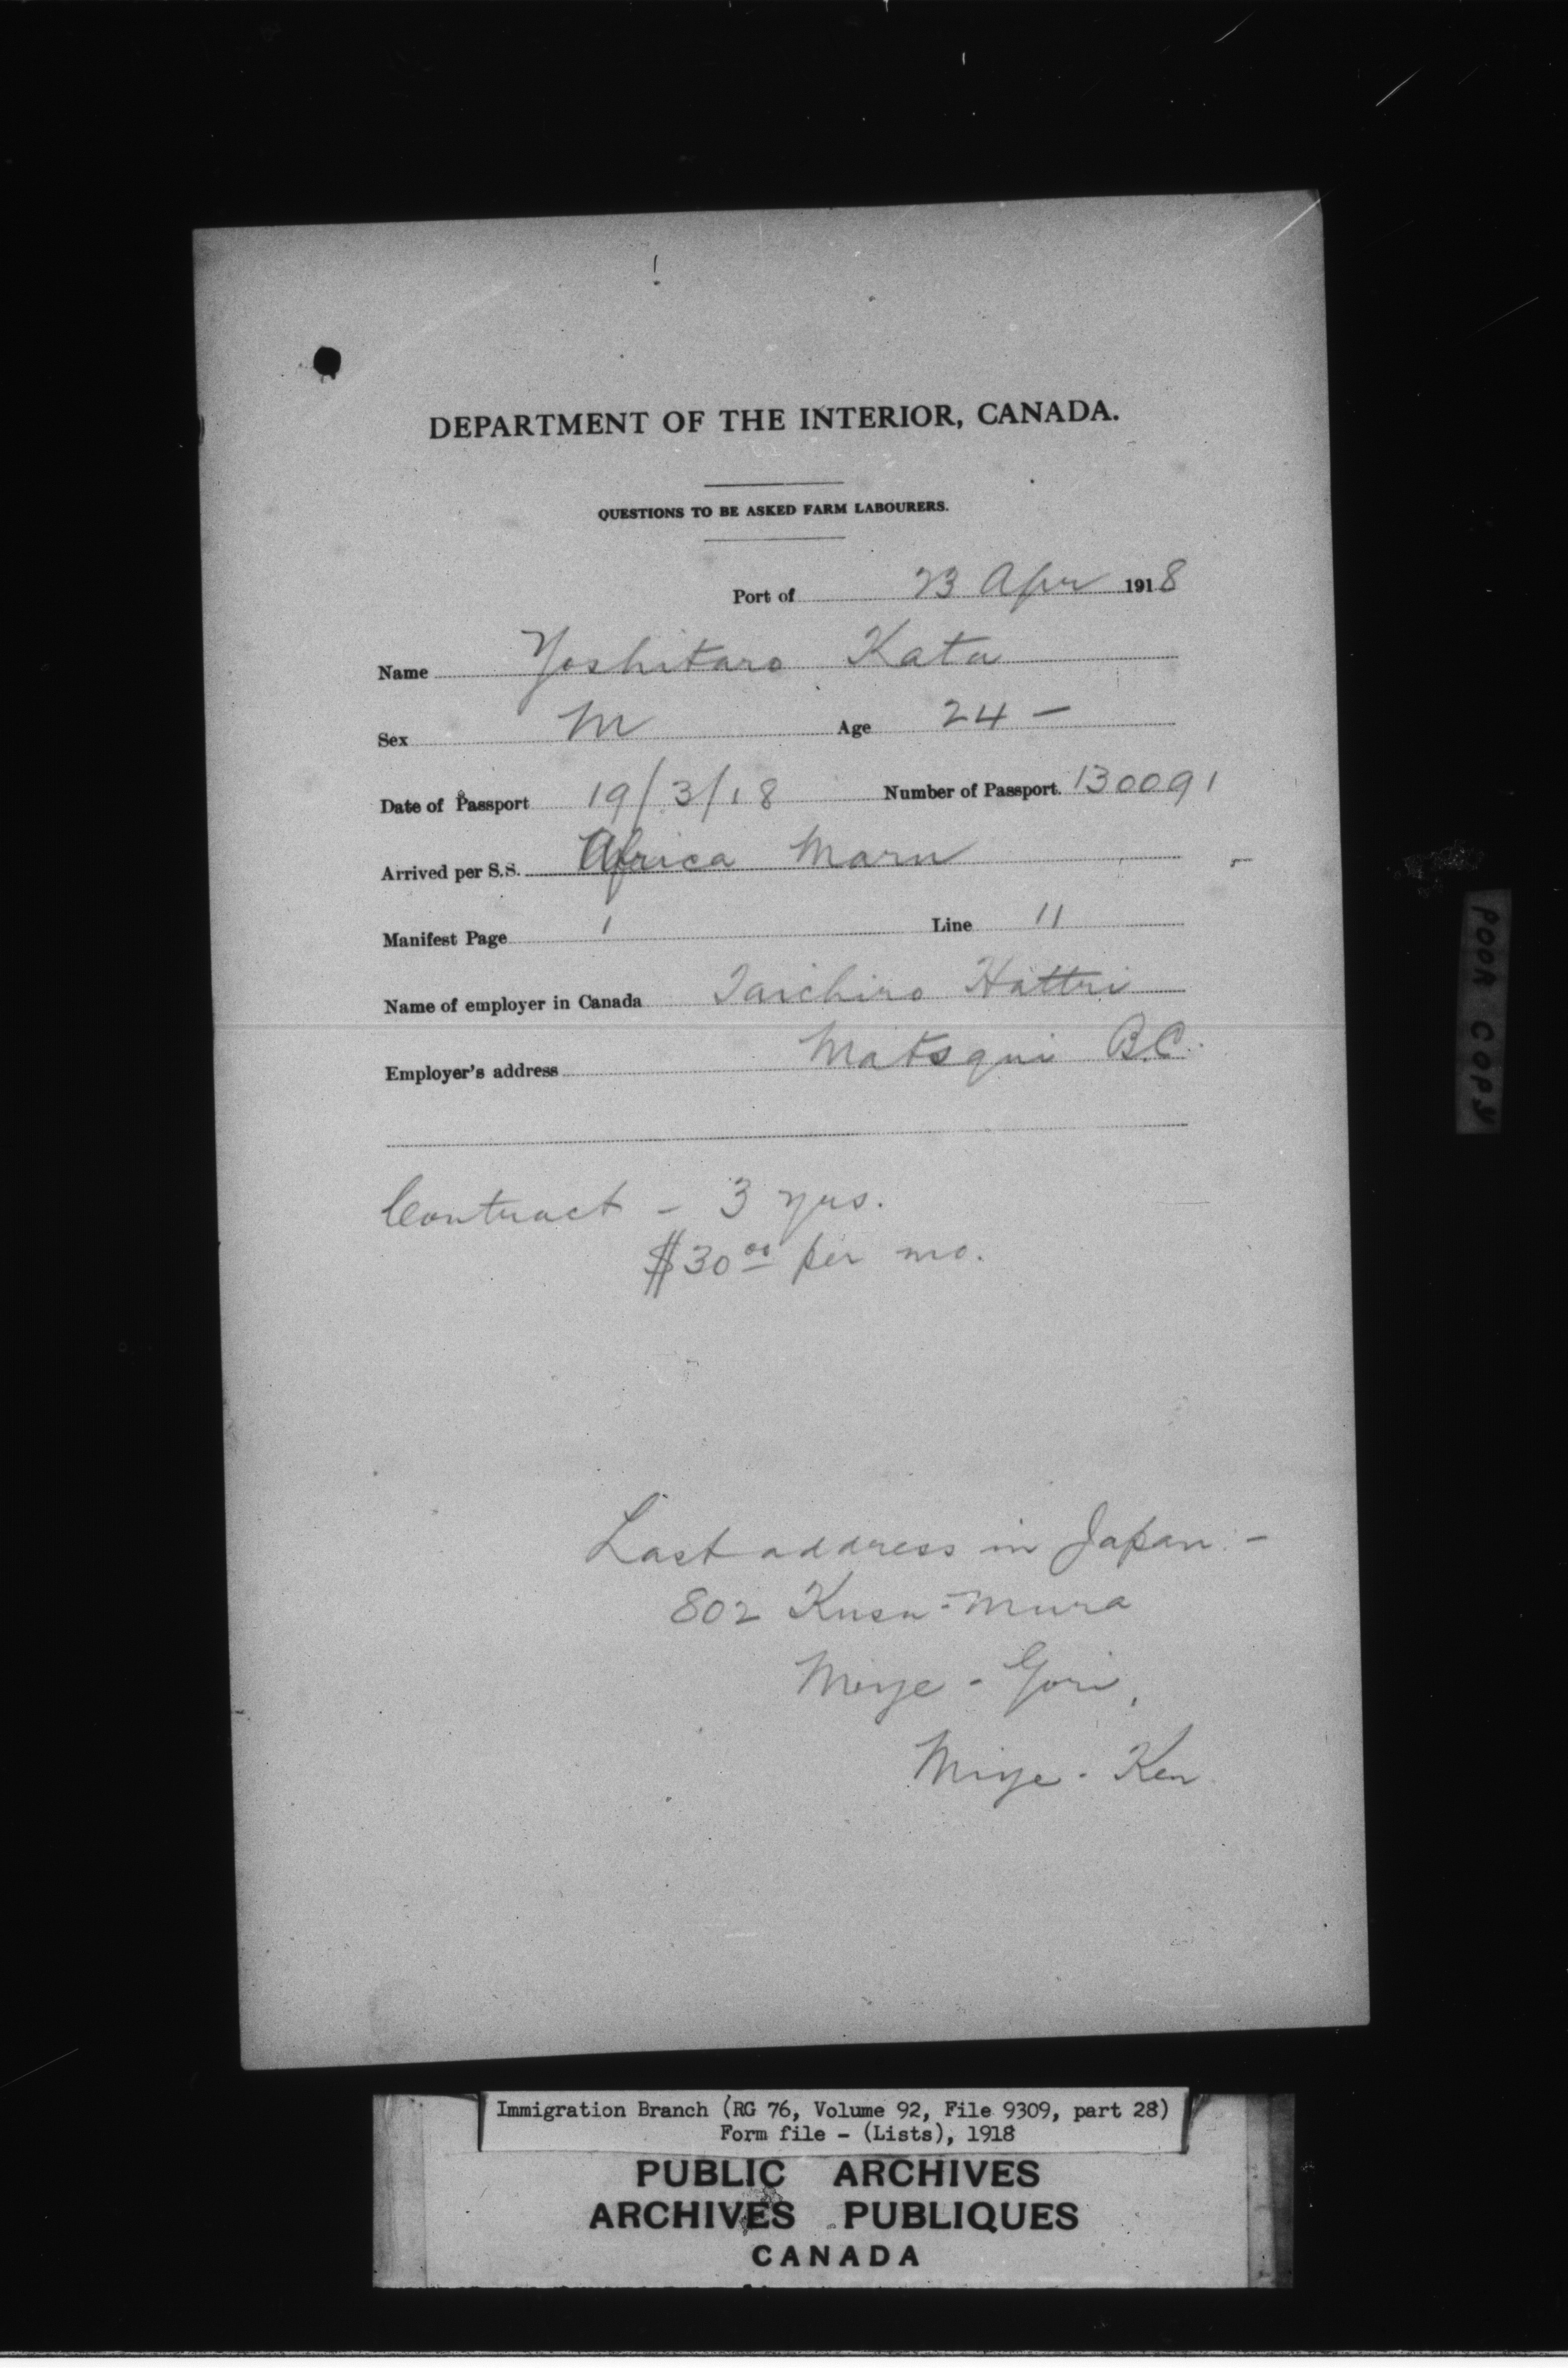 DEPARTMENT OF THE INTERIOR, CANADA.
QUESTIONS TO BE ASKED FARM LABOURERS.
Port of 23 Apr 1918
Name Yoshitaro Kato
Sex M Age 24 -
Date of Passport 19/3/18 Number of Passport. 130091
Arrived per S.S. Africa Maru
Manifest Page 1 Line 11
Name of employer in Canada Taichiro Hattri
Employer's address Matsqui B.C.
Contract - 3 yrs.
$30 00 per mo.
Last address in Japan: -
802 Kusu-Mura
Miye - Gori,
Miye - Ken
POOR COPY
Immigration Branch (RG 76, Volume 92, File 9309, part 28)
Form file - (Lists), 1918
PUBLIC ARCHIVES
ARCHIVES PUBLIQUES
CANADA